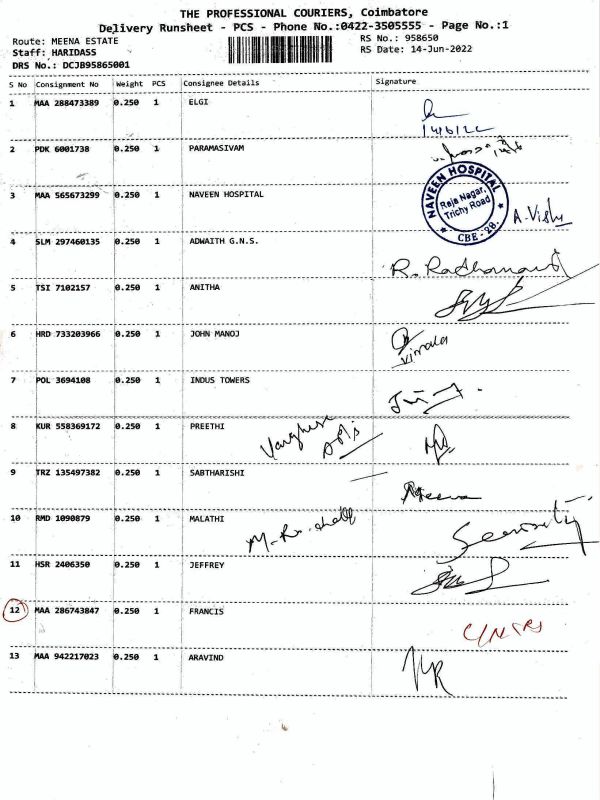 THE PROFESSIONAL COURIERS, Coimbatore
Delivery Runsheet - PCS - Phone No.:0422-3505555 - Page No.:1
Route: MEENA ESTATE
RS No.: 958650
Staff: HARIDASS
RS Date: 14-Jun-2022
DRS No.: DCJB95865001
S No Consignment No Weight PCS Consignee Details Signature
1 MAA 288473389 0.250 1 ELGI
14/6/22
2 PDK 6001738 0.250 1 PARAMASIVAM
3 MAA 565673299 0.250 1 NAVEEN HOSPITAL
NAVEEN HOSPITAL
Raja Nagar,
Trichy Road
CBE - 28.
A. Vishu
4 SLM 297460135 0.250 1 ADWAITH G.N.S.
5 TSI 7102157 0.250 1 ANITHA
6 HRD 733203966 0.250 1 JOHN MANOJ
Vimala
7 POL 3694108 0.250 1 INDUS TOWERS
8 KUR 558369172 0.250 1 PREETHI
9 TRZ 135497382 0.250 1 SABTHARISHI
10 RMD 1090879 0.250 1 MALATHI
11 HSR 2406350 0.250 1 JEFFREY
12 MAA 286743847 0.250 1 FRANCIS
13 MAA 942217023 0.250 1 ARAVIND